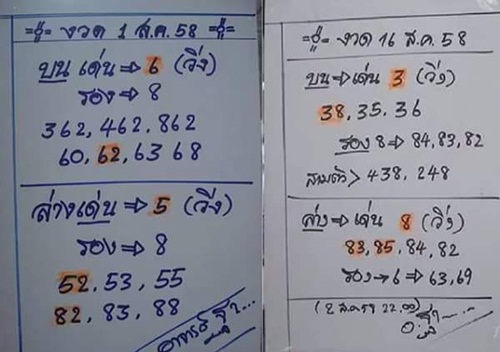 งวด 1 ส.ค. 58
บนเด่น ⇒ 6 (วิ่ง)
รอง ⇒ 8
362, 462, 862
60, 62, 63 68
ล่างเด่น ⇒ 5 (วิ่ง)
รอง ⇒ 8
52, 53, 55
82, 83, 88
งวด 16 ส.ค. 58
บน ⇒ เด่น 3 (วิ่ง)
38, 35, 36
รอง 8 ⇒ 84, 83, 82
สามตัว > 438, 248
ล่าง ⇒ เด่น 8 (วิ่ง)
83, 85, 84, 82
รอง → 6 ⇒ 63, 69